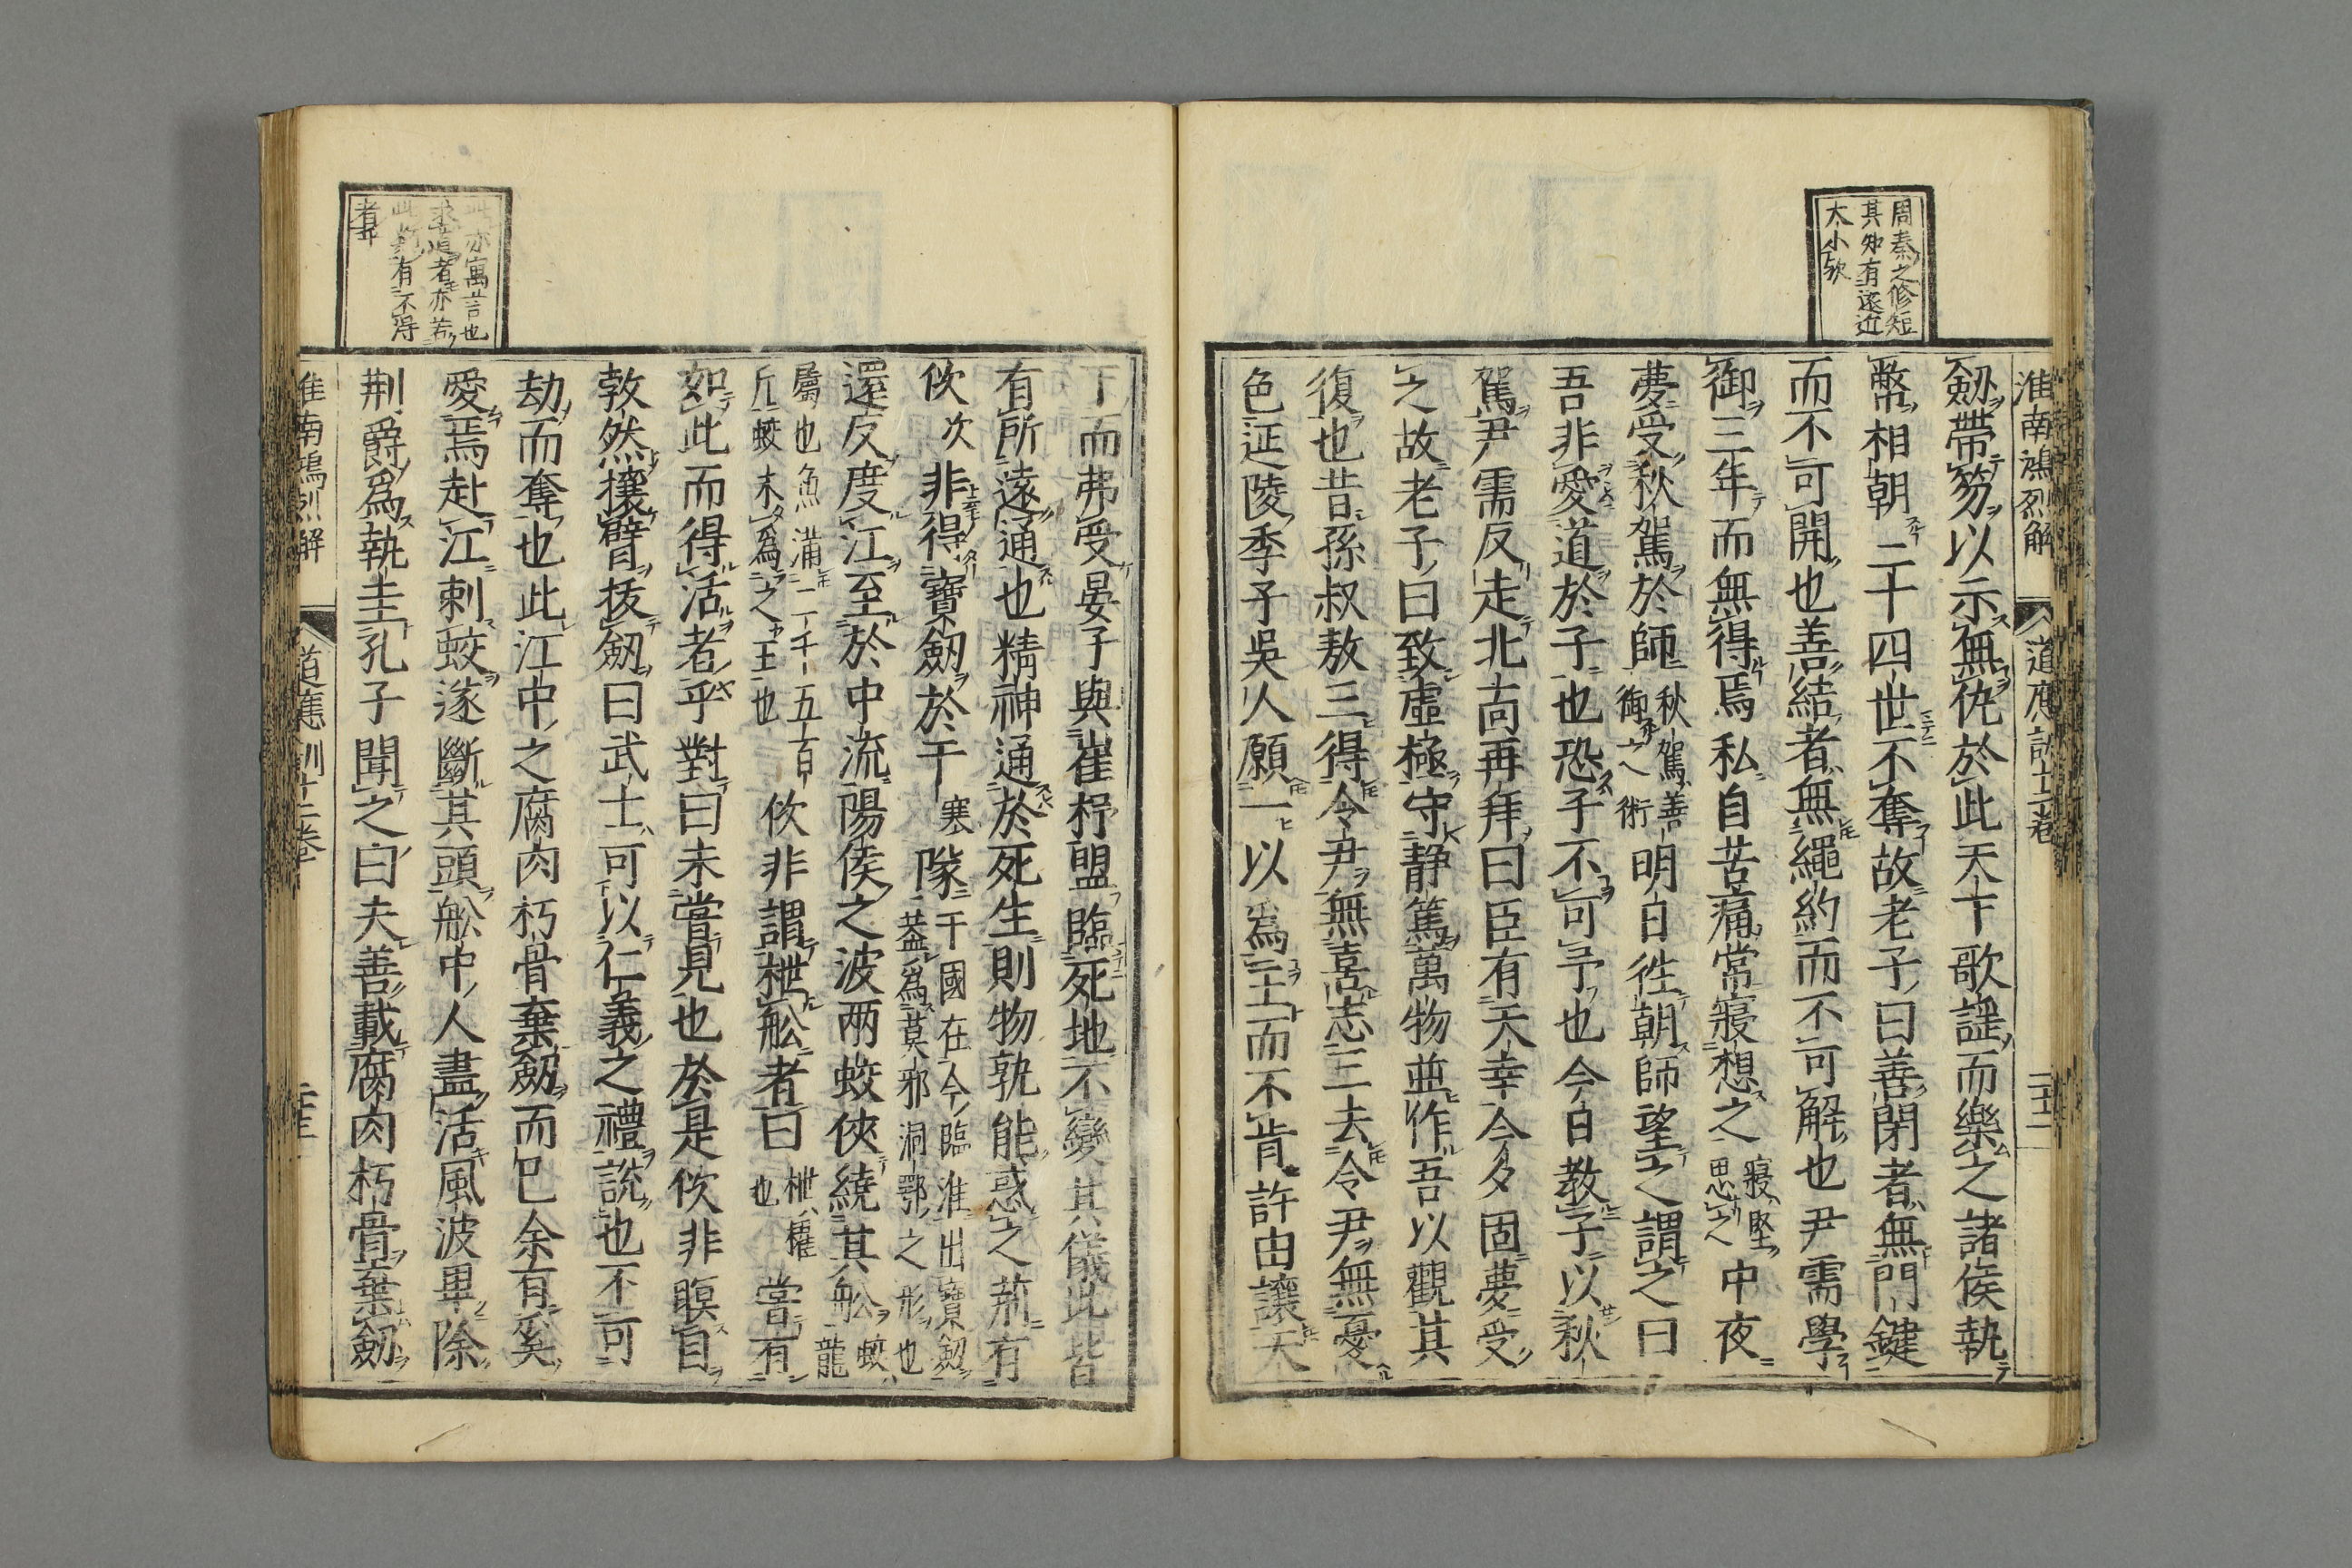 淮南鴻烈解
道應訓十二卷
周秦之修短
其知有遠近
大小歟
劔帶笏以示無仇於此天下歌謡而樂之諸侯執
幣相朝三十四世不奪故老子曰善閉者無門鍵
而不可開也善結者無繩約而不可解也尹需學
御三年而無得焉私自苦痛常寢想之寢堅思之中夜
夢受秋駕於師秋駕善御之術明日徃朝師望之謂之曰
吾非愛道於子也恐子不可予也今日教子以秋
駕尹需反走北靣再拜曰臣有天幸今夕固夢受
之故老子曰致虛極守静篤萬物並作吾以觀其
復也昔孫叔敖三得令尹無喜志三去令尹無憂
色延陵季子吳人願一以爲王而不肯許由讓天
此亦寓言也
求道者亦若
此
有不得
者耶
下而弗受晏子與崔杼盟臨死地不變其儀此皆
有所遠通也精神通於死生則物孰能惑之荊有
佽次非得寶劔於干寒隊干國在今臨淮出寶劔蓋爲莫邪洞鄂之形也
還反度江至於中流陽侯之波兩蛟俠繞其舩蛟龍
屬也魚滿二千五百斤蛟來爲之主也佽非謂枻舩者曰枻櫂也嘗有
如此而得活者乎對曰未嘗見也於是佽非瞑自
敦然攘臂拔劔曰武士可以仁義之禮説也不可
劫而奪也此江中之腐肉朽骨棄劔而已余有奚
愛焉赴江刺蛟遂斷其頭舩中人盡活風波畢除
荆爵爲執圭孔子聞之曰夫善載腐肉朽骨棄劔
淮南鴻烈解
道應訓十二卷